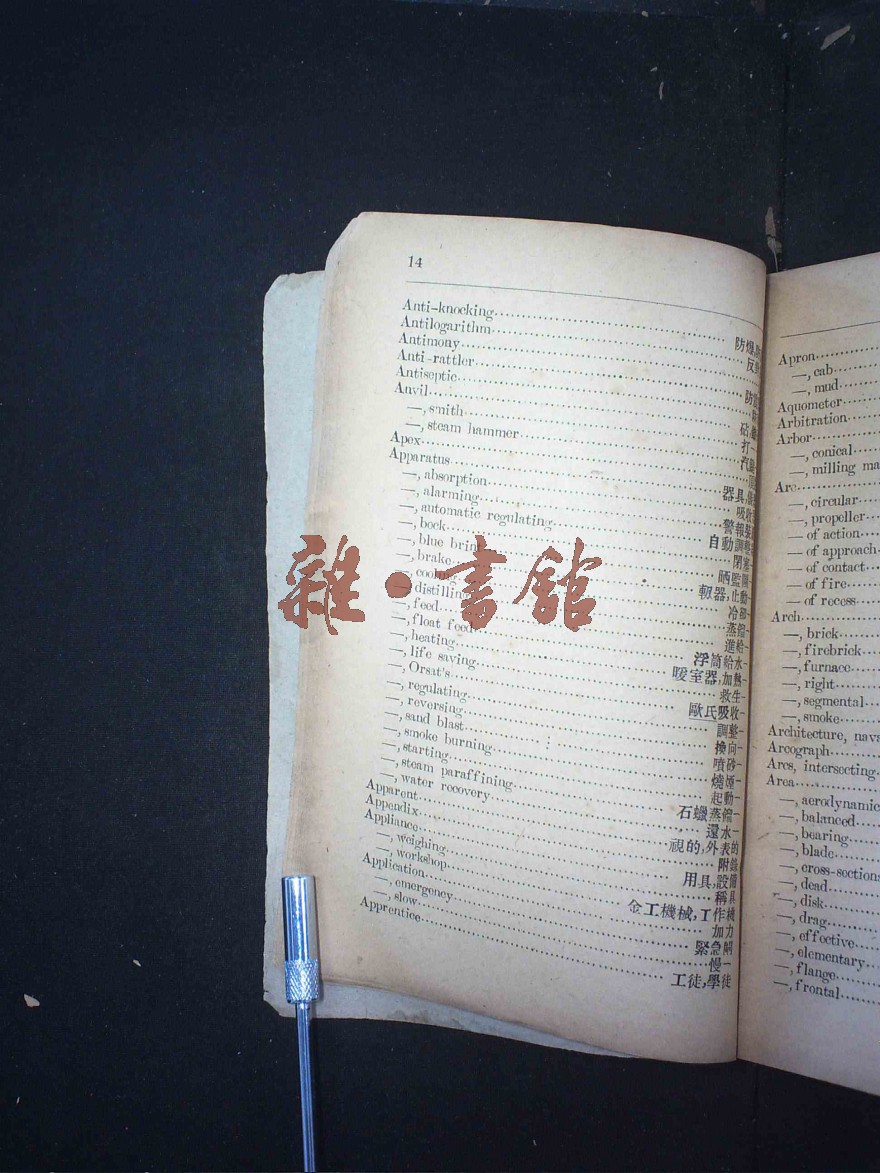 14
Anti-knocking 防爆
Antilogarithm 反
Antimony
Anti-rattler 防
Antiseptic
Anvil 砧,
—, smith 打—
—, steam hammer 汽
Apex
Apparatus 器具,
—, absorption 吸收
—, alarming 警報裝
—, automatic regulating 自動調整
—, bock 閉塞—
—, blue brint 晒藍圖—
—, brake 軔器,止動—
—, cooling 冷卻—
—, distilling 蒸餾—
—, feed 進給—
—, float feed 浮筒給水—
—, heating 暖室器,加熱—
—, life saving 救生—
—, Orsat's 歐氏吸收—
—, regulating 調整—
—, reversing 換向—
—, sand blast 噴砂—
—, smoke burning 燒煙—
—, starting 起動—
—, steam paraffining 石蠟蒸餾—
—, water recovery 還水—
Apparent 視的,外表的
Appendix 附錄
Appliance 用具,設備
—, weighing 稱具
—, workshop 金工機械,工作機
Application 加力
—, emergency 緊急閘
—, slow 慢—
Apprentice 工徒,學徒
Apron
—, cab
—, mud
Aquometer
Arbitration
Arbor
—, conical
—, milling ma
Arc
—, circular
—, propeller
— of action
— of approach
— of contact
— of fire
— of recess
Arch
—, brick
—, firebrick
—, furnace
—, right
—, segmental
—, smoke
Architecture, nava
Arcograph
Arcs, intersecting
Area
—, aerodynamic
—, balanced
—, bearing
—, blade
—, cross-section
—, dead
—, disk
—, drag
—, effective
—, elementary
—, flange
—, frontal
雜·書館